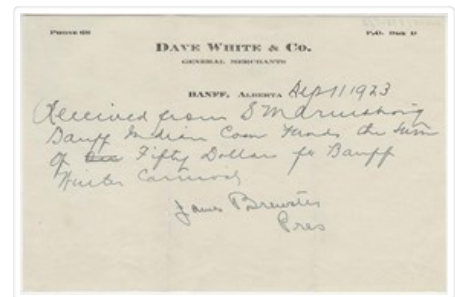 PHONE 68
P.O. BOX D
DAVE WHITE & CO.
GENERAL MERCHANTS
BANFF, ALBERTA Sept 11 1923
Received from S M Armstrong
Banff Indian Com Funds the Sum
of Fifty Dollars for Banff
Winter Carnival
James Brewster
Pres